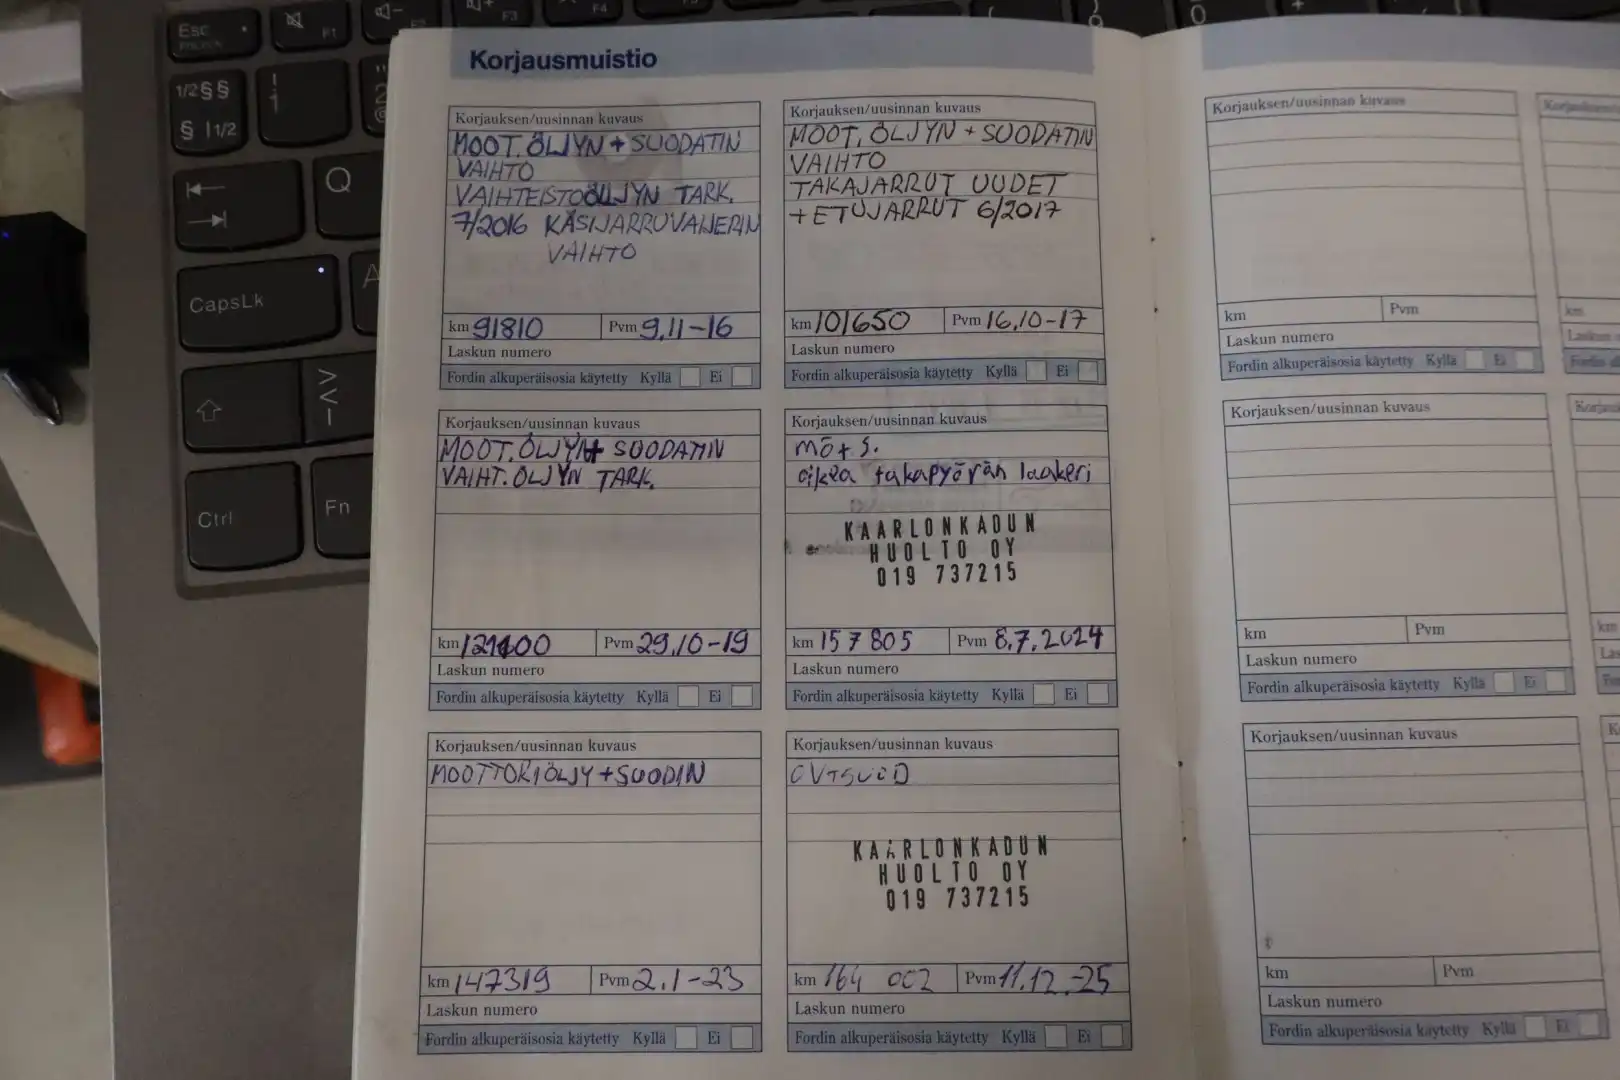 Esc
FnLock
F1
F2
F3
F4
1/2 § §
§ | 1/2
!
1
"
2
@
Q
CapsLk
A
>
<
|
Ctrl
Fn
Korjausmuistio
Korjauksen/uusinnan kuvaus
MOOT.ÖLJYN + SUODATIN
VAIHTO
VAIHTEISTOÖLJYN TARK.
7/2016 KÄSIJARRUVAIJERIN
VAIHTO
km 91810 Pvm 9.11-16
Laskun numero
Fordin alkuperäisosia käytetty Kyllä Ei
Korjauksen/uusinnan kuvaus
MOOT.ÖLJYN + SUODATIN
VAIHTO
TAKAJARRUT UUDET
+ ETUJARRUT 6/2017
km 101650 Pvm 16.10-17
Laskun numero
Fordin alkuperäisosia käytetty Kyllä Ei
Korjauksen/uusinnan kuvaus
MOOT.ÖLJYN+ SUODATIN
VAIHT.ÖLJYN TARK.
km Pvm 29.10-19
Laskun numero
Fordin alkuperäisosia käytetty Kyllä Ei
Korjauksen/uusinnan kuvaus
mö+s.
oikea takapyörän laakeri
KAARLONKADUN
HUOLTO OY
019 737215
km 157 805 Pvm 8.7.2024
Laskun numero
Fordin alkuperäisosia käytetty Kyllä Ei
Korjauksen/uusinnan kuvaus
MOOTTORIÖLJY +SUODIN
km 147319 Pvm 2.1-23
Laskun numero
Fordin alkuperäisosia käytetty Kyllä Ei
Korjauksen/uusinnan kuvaus
KAARLONKADUN
HUOLTO OY
019 737215
km 164 002 Pvm 11.12.-25
Laskun numero
Fordin alkuperäisosia käytetty Kyllä Ei
Korjauksen/uusinnan kuvaus
km Pvm
Laskun numero
Fordin alkuperäisosia käytetty Kyllä Ei
Korjauksen/uusinnan kuvaus
km Pvm
Laskun numero
Fordin alkuperäisosia käytetty Kyllä Ei
Korjauksen/uusinnan kuvaus
km Pvm
Laskun numero
Fordin alkuperäisosia käytetty Kyllä Ei